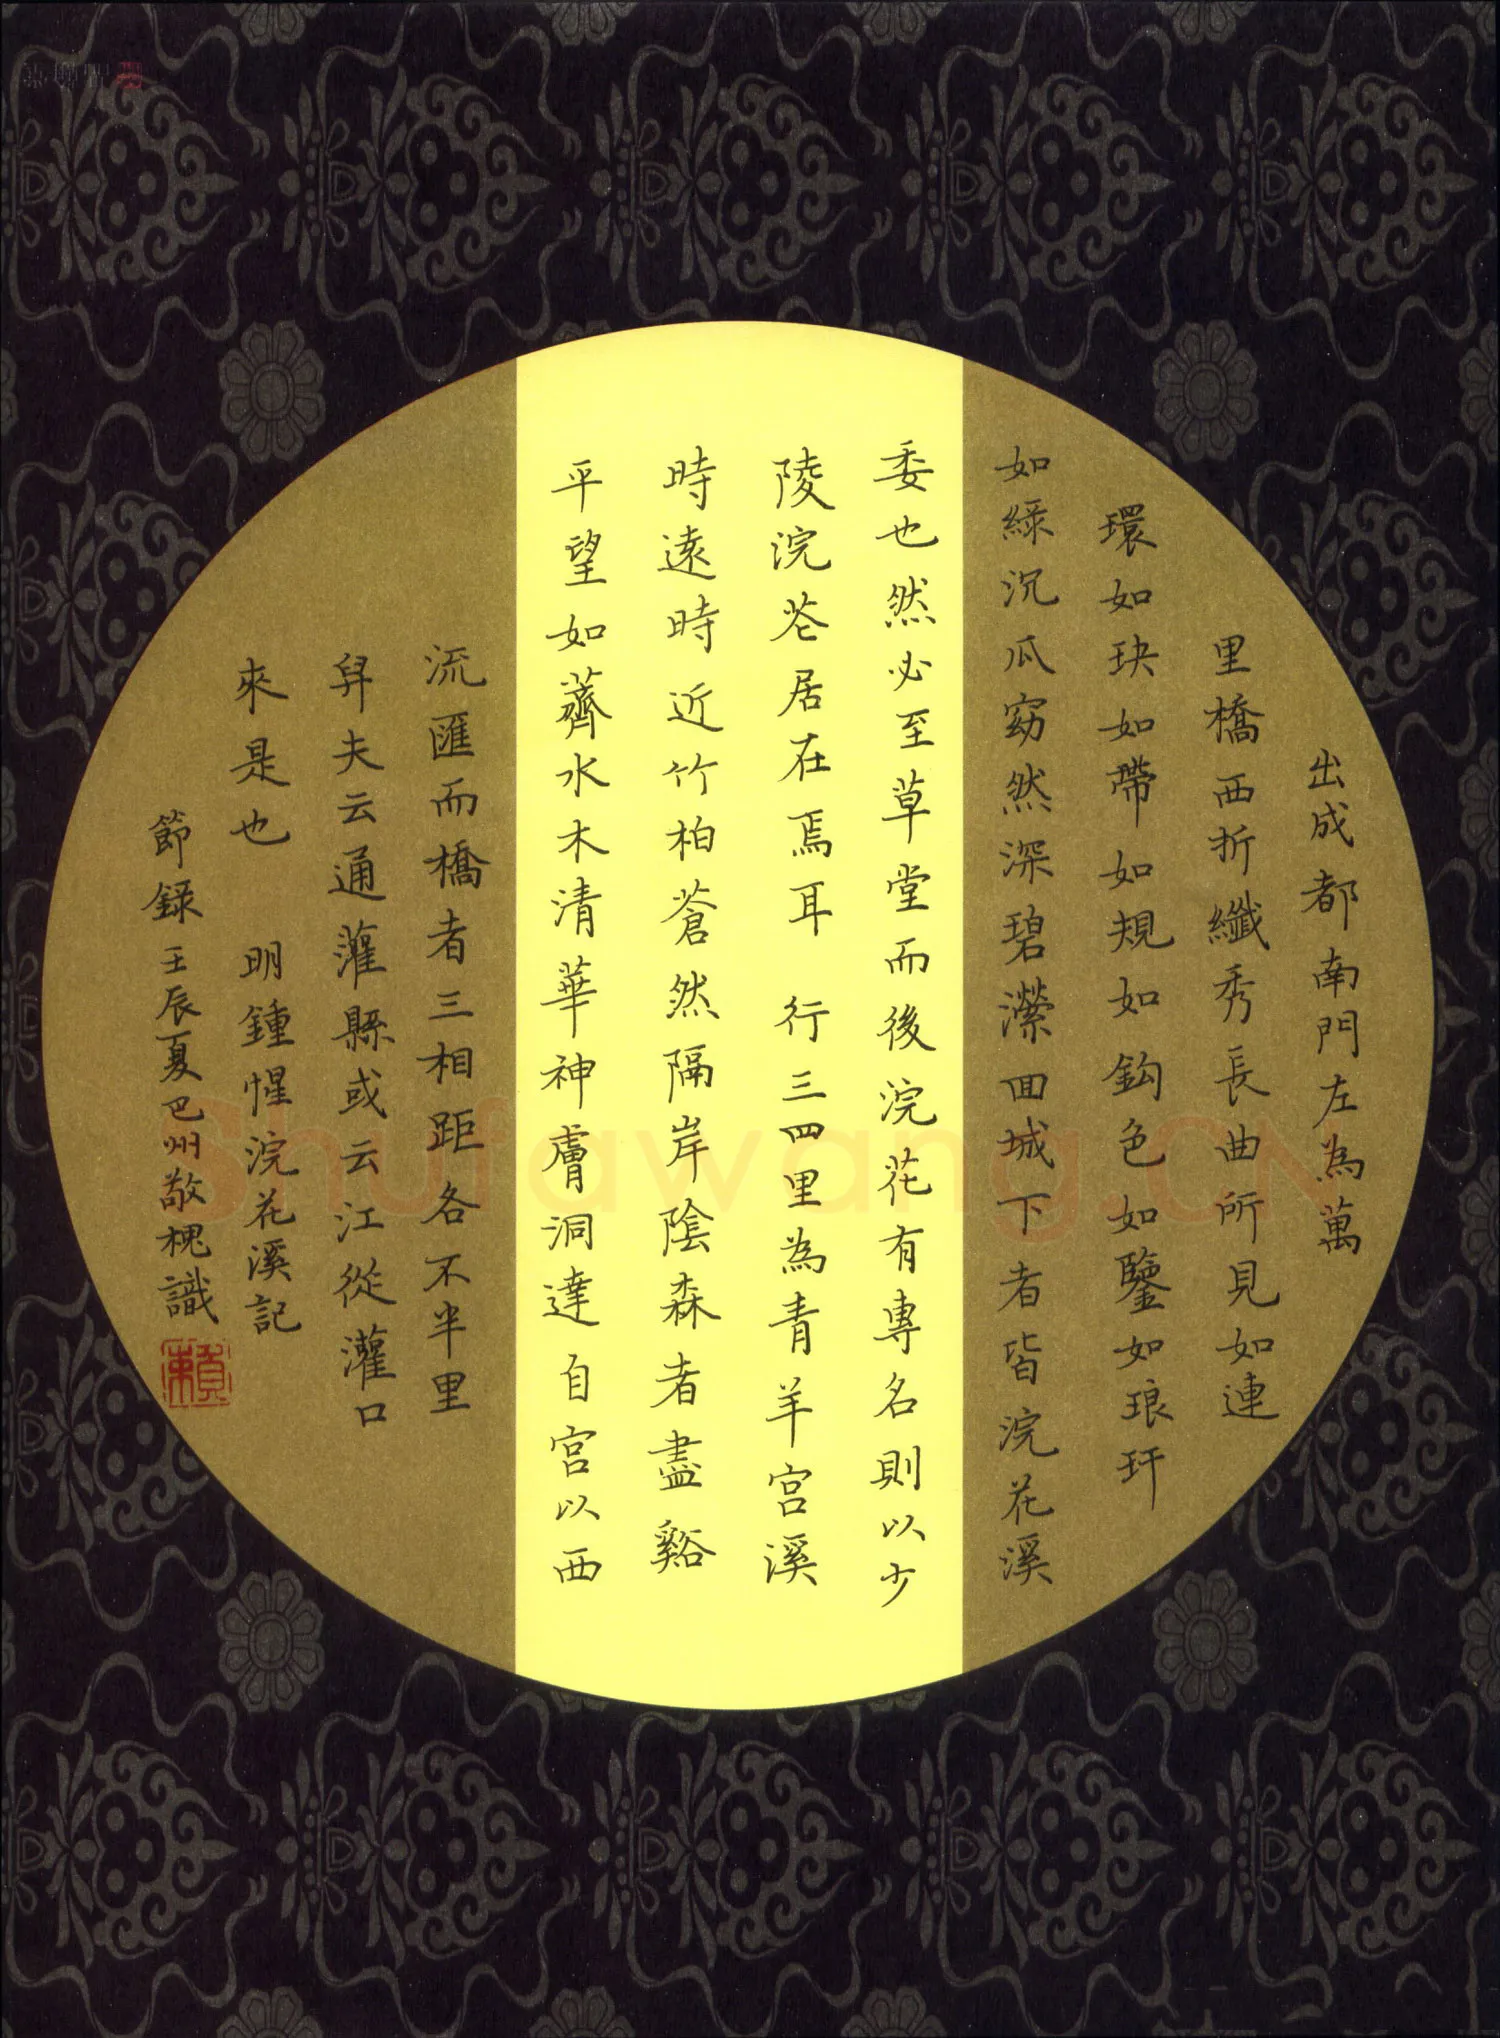 出成都南門左為萬
里橋西折纖秀長曲所見如連
環如玦如帶如規如鈎色如鑒如琅玕
如綠沉瓜窈然深碧瀠囬城下者皆浣花溪
委也然必至草堂而後浣花有專名則以少
陵浣花居在焉耳 行三四里為青羊宮溪
時遠時近竹柏蒼然隔岸陰森者盡谿
平望如薺水木清華神膚洞達自宮以西
流匯而橋者三相距各不半里
舁夫云通灌縣或云江從灌口
來是也 明鍾惺浣花溪記
節録壬辰夏巴州敬槐識
賴
Shufawang.CN